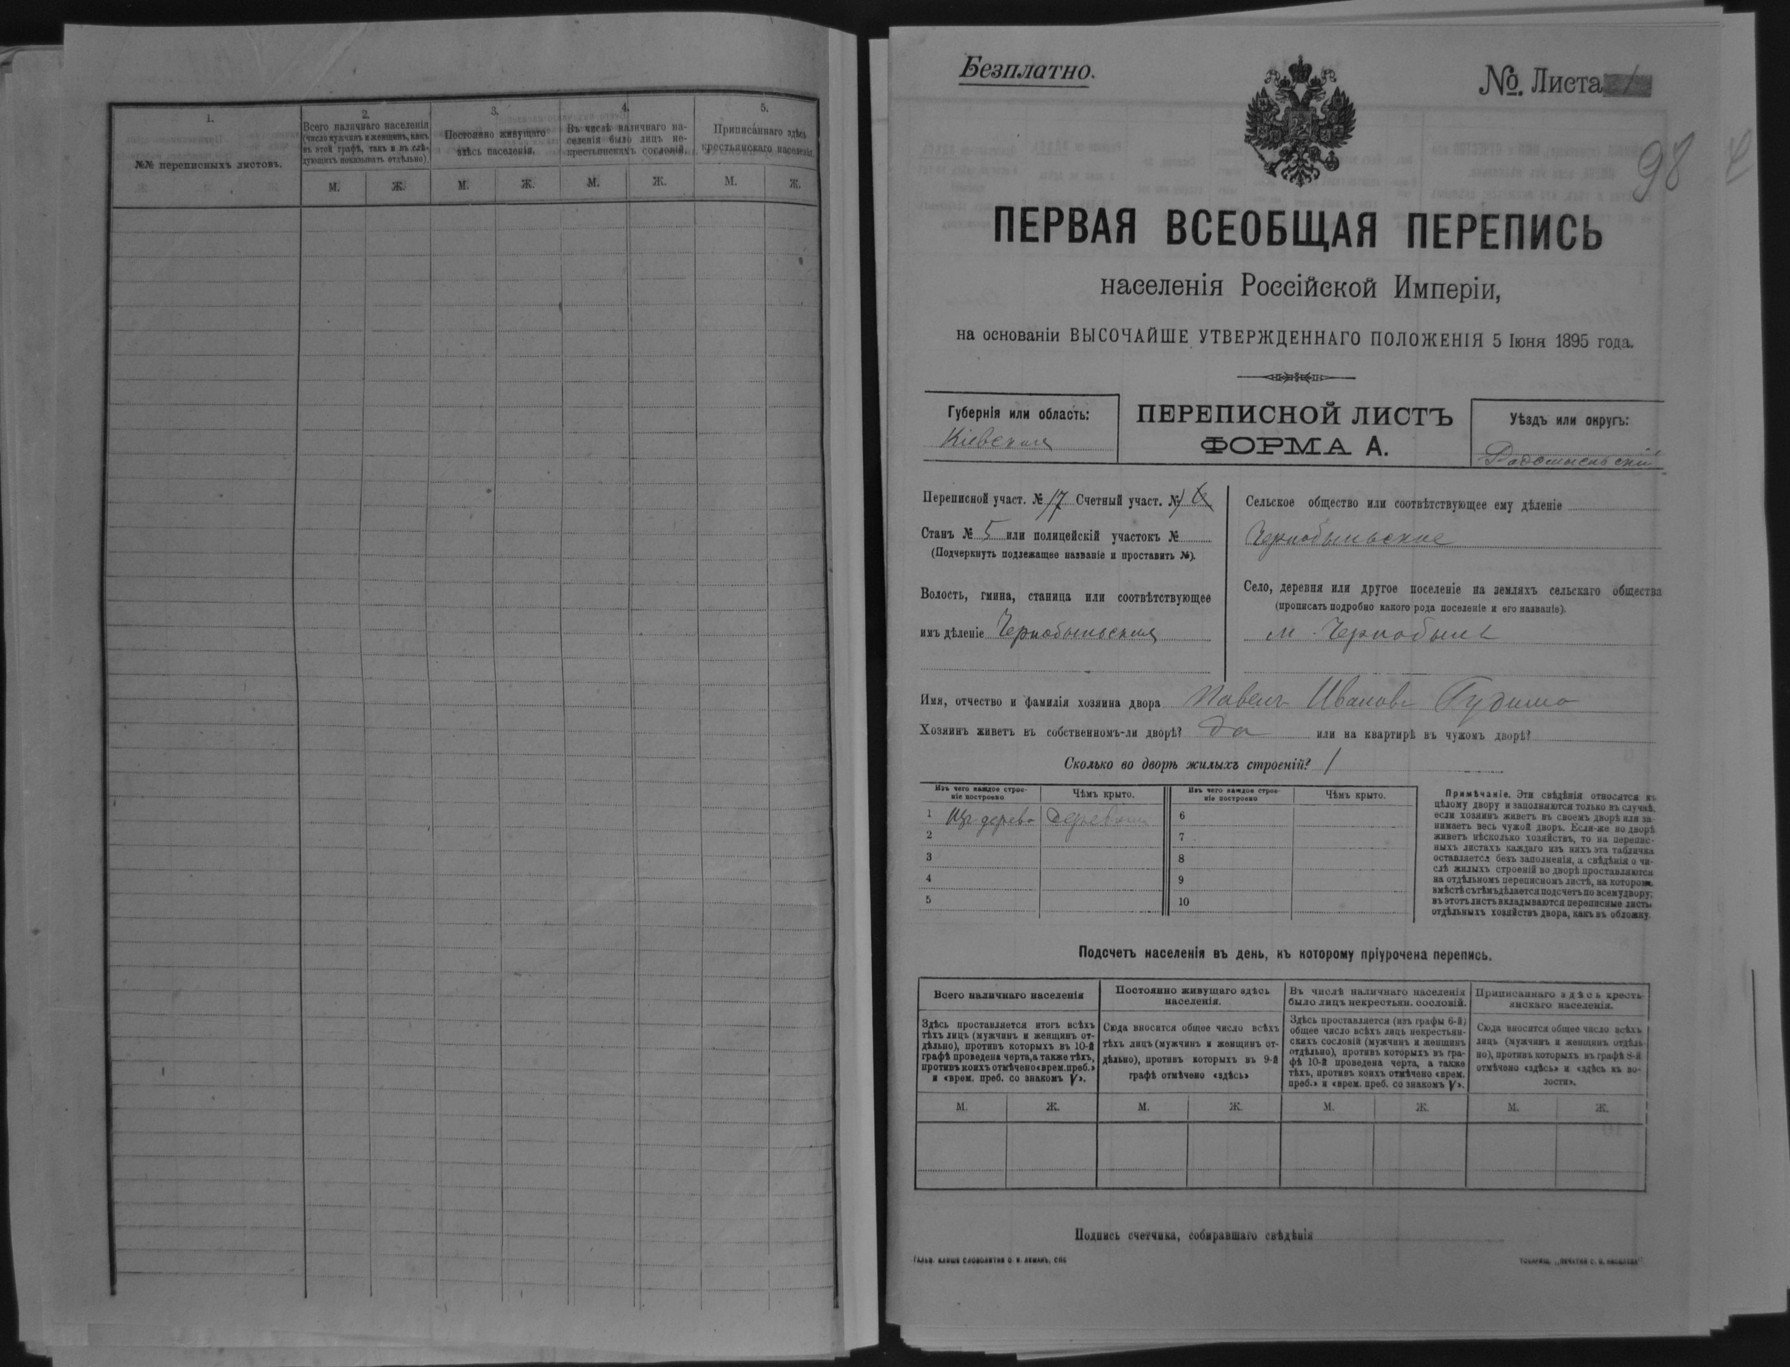 1.
№№ переписныхъ листовъ.
2.
Всего наличнаго населенія
(число мужчинъ и женщинъ, какъ
въ этой графѣ, такъ и въ слѣ-
дующихъ показывать отдѣльно).
М. Ж.
3.
Постоянно живущаго
здѣсь населенія.
М. Ж.
4.
Въ числѣ наличнаго на-
селенія было лицъ не-
крестьянскихъ сословій.
М. Ж.
5.
Приписаннаго здѣсь
крестьянскаго населенія.
М. Ж.
Безплатно.
№. Листа 1
98
ПЕРВАЯ ВСЕОБЩАЯ ПЕРЕПИСЬ
населенія Россійской Имперіи,
на основаніи ВЫСОЧАЙШЕ УТВЕРЖДЕННАГО ПОЛОЖЕНІЯ 5 Іюня 1895 года.
Губернія или область:
Кіевская
ПЕРЕПИСНОЙ ЛИСТЪ
ФОРМА А.
Уѣздъ или округъ:
Радомысльскій
Переписной участ. № 17 Счетный участ. №
Станъ № 5 или полицейскій участокъ №
(Подчеркнуть подлежащее названіе и проставить №).
Волость, гмина, станица или соотвѣтствующее
имъ дѣленіе Чернобыльская
Сельское общество или соотвѣтствующее ему дѣленіе
Чернобыльское
Село, деревня или другое поселеніе на земляхъ сельскаго общества
(прописать подробно какого рода поселеніе и его названіе).
м. Чернобыль
Имя, отчество и фамилія хозяина двора Павелъ Ивановъ Гудима
Хозяинъ живетъ въ собственномъ-ли дворѣ? да или на квартирѣ въ чужомъ дворѣ?
Сколько во дворѣ жилыхъ строеній? 1
Изъ чего каждое строе-
ніе построено
Чѣмъ крыто.
Изъ чего каждое строе-
ніе построено
Чѣмъ крыто.
1 Изъ дерева 6
2 7
3 8
4 9
5 10
Примѣчаніе. Эти свѣдѣнія относятся къ
цѣлому двору и заполняются только въ случаѣ,
если хозяинъ живетъ въ своемъ дворѣ или за-
нимаетъ весь чужой дворъ. Если-же во дворѣ
живетъ нѣсколько хозяйствъ, то на перепис-
ныхъ листахъ каждаго изъ нихъ эта табличка
оставляется безъ заполненія, а свѣдѣнія о чи-
слѣ жилыхъ строеній во дворѣ проставляются
на отдѣльномъ переписномъ листѣ, на которомъ
вмѣстѣ съ тѣмъ дѣлается подсчетъ по всему двору;
въ этотъ листъ вкладываются переписные листы
отдѣльныхъ хозяйствъ двора, какъ въ обложку.
Подсчетъ населенія въ день, къ которому пріурочена перепись.
Всего наличнаго населенія
Здѣсь проставляется итогъ всѣхъ
тѣхъ лицъ (мужчинъ и женщинъ от-
дѣльно), противъ которыхъ въ 10-й
графѣ проведена черта, а также тѣхъ,
противъ коихъ отмѣчено «врем. преб.»
и «врем. преб. со знакомъ V».
М. Ж.
Постоянно живущаго здѣсь
населенія.
Сюда вносится общее число всѣхъ
тѣхъ лицъ (мужчинъ и женщинъ от-
дѣльно), противъ которыхъ въ 9-й
графѣ отмѣчено «здѣсь»
М. Ж.
Въ числѣ наличнаго населенія
было лицъ некрестьян. сословій.
Здѣсь проставляется (изъ графы 6-й)
общее число всѣхъ лицъ некрестьян-
скихъ сословій (мужчинъ и женщинъ
отдѣльно), противъ которыхъ въ гра-
фѣ 10-й проведена черта, а также
тѣхъ, противъ коихъ отмѣчено «врем.
преб.» и «врем. преб. со знакомъ V».
М. Ж.
Приписаннаго здѣсь кресть-
янскаго населенія.
Сюда вносится общее число всѣхъ
лицъ (мужчинъ и женщинъ отдѣль-
но), противъ которыхъ въ графѣ 8-й
отмѣчено «здѣсь» и «здѣсь въ во-
лости».
М. Ж.
Подпись счетчика, собиравшаго свѣдѣнія
ГАЛЬВ. КЛИШЕ СЛОВОЛИТНИ О. И. ЛЕМАНЪ, СПБ